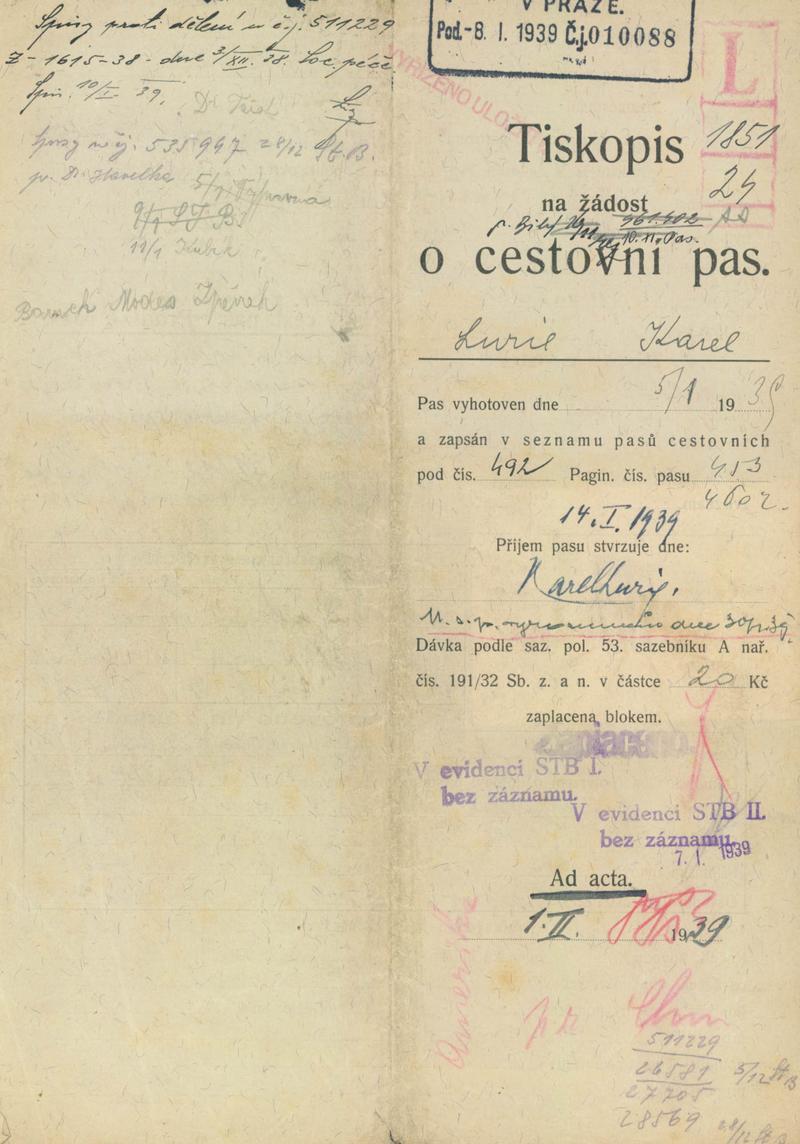 Spisy proti dělení u č.j. 511229
Z-1615-38- dne 3/XII. 38. Soc. péče
Spis. 10/I. 39.
Spisy u čj. 535947 28/12 St. B.
p. Dr. Havelka
5/1 Výpravna
9/1 ST B
11/1 Kubík
Modes Zpěvák
V PRAZE.
Pod.-8. I. 1939 Č.j.010088
VYŘÍZENO ULOŽ
L
1851
24
Tiskopis
na žádost
10. 11. Pas.
o cestovní pas.
Lurie Karel
Pas vyhotoven dne 5/1 1939
a zapsán v seznamu pasů cestovních
pod čís. 492 Pagin. čís. pasu 453
4602.
14. I. 1939
Přijem pasu stvrzuje dne:
Karel Lurie.
Dávka podle saz. pol. 53. sazebníku A nař.
čís. 191/32 Sb. z. a n. v částce 20 Kč
zaplacena blokem.
zaplaceno.
V evidenci STB I.
bez záznamu.
V evidenci STB II.
bez záznamu.
7. I. 1939
Ad acta.
1. II. 1939
Amerika
511229
26581 5/12 St B
27705
28569